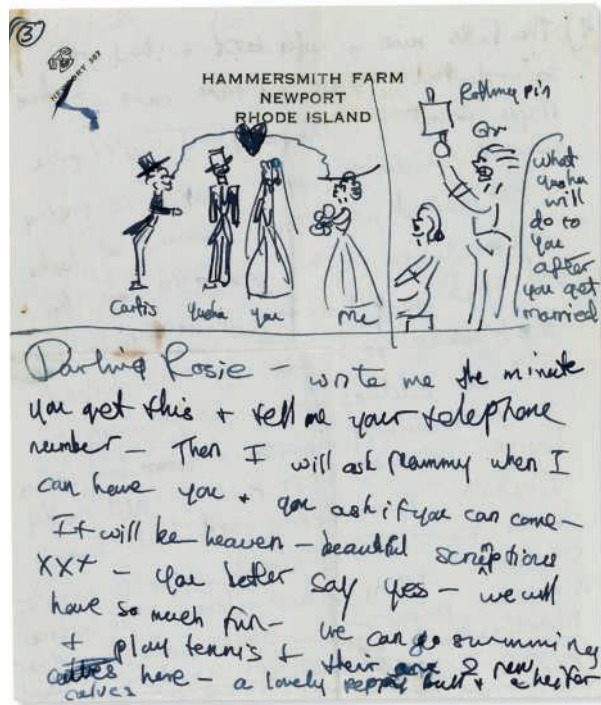 3
NEWPORT 307
HAMMERSMITH FARM
NEWPORT
RHODE ISLAND
Rolling pin
Grr
what
yusha
will
do to
you
after
you get
married
Curtis yusha you me
Darling Rosie – write me the minute
you get this + tell me your telephone
number – Then I will ask Mummy when I
can have you + you ask if you can come –
It will be heaven – beautiful scriptious
XXX – you better say yes – we will
have so much fun – we can go swimming
+ play tennis + their are 2 new
calves here – a lovely bull + a heifer
calves